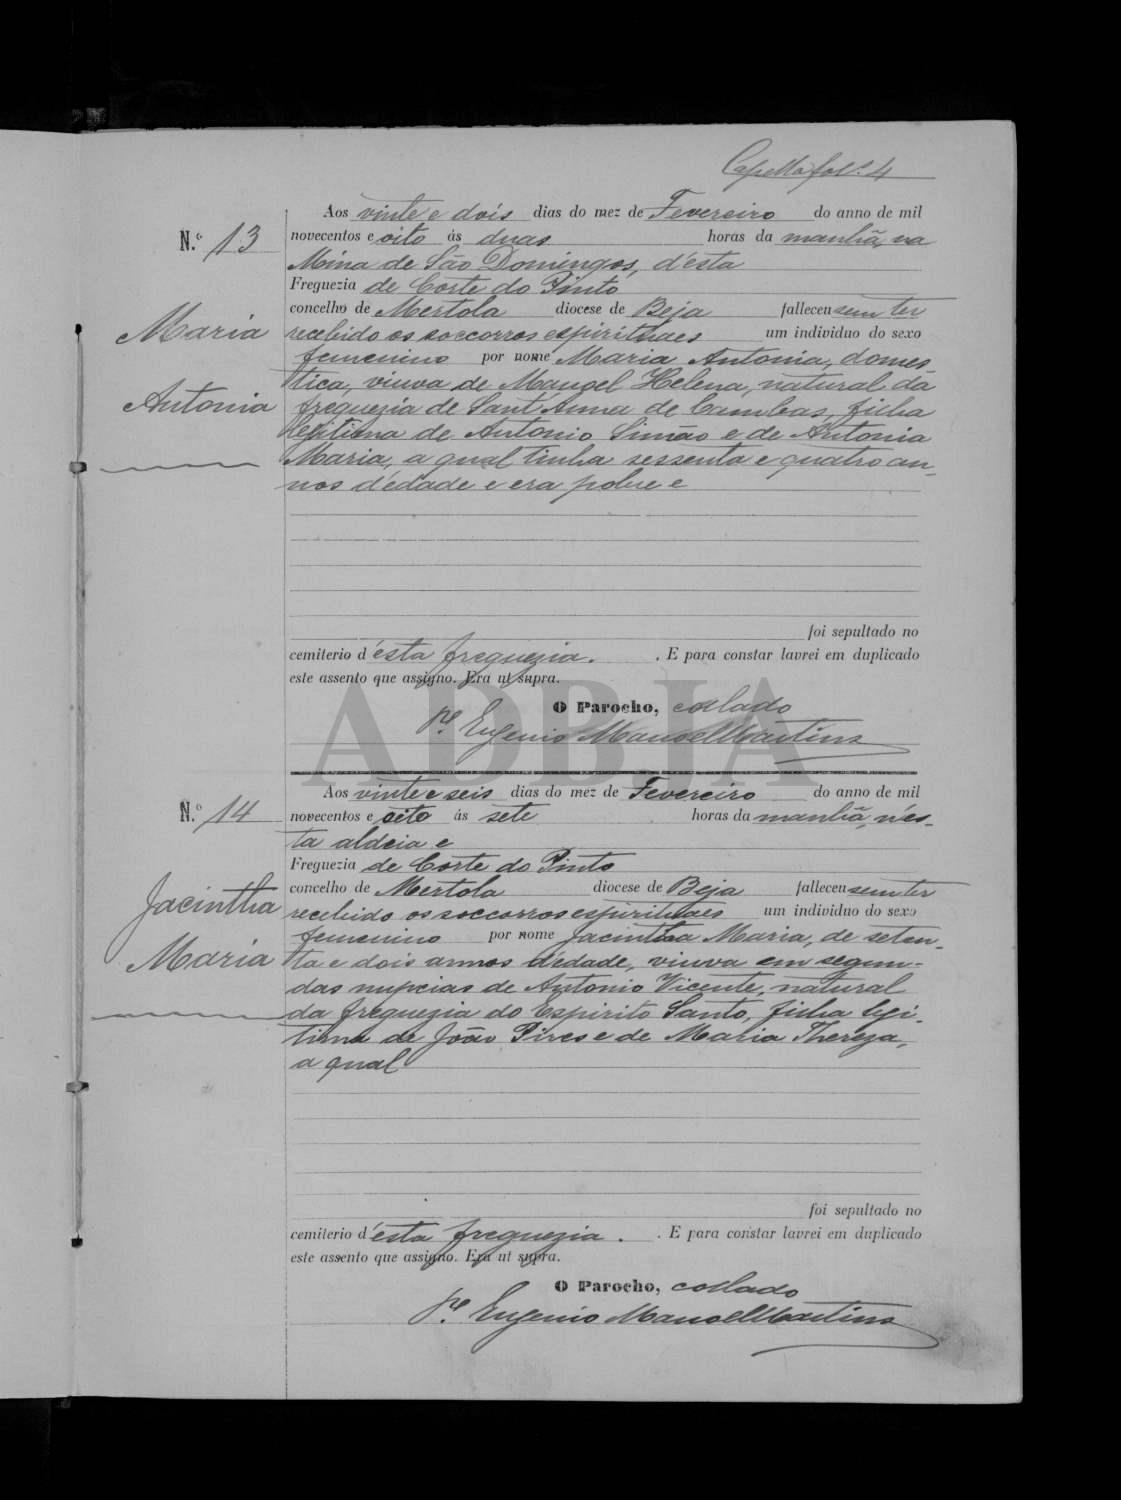 fol.º 4
Aos vinte e dois dias do mez de Fevereiro do anno de mil
N.º 13
novecentos e oito ás duas horas da manhã, na
Mina de São Domingos, d'esta
Freguezia de Corte do Pinto
concelho de Mertola diocese de Beja falleceu sem ter
Maria
recebido os soccorros espirituaes um individuo do sexo
femenino por nome Maria Antonia, domes-
tica, viuva de Manoel Helena, natural da
Antonia
freguezia de Sant'Anna de Cambas, filha
legitima de Antonio Simão e de Antonia
Maria, a qual tinha sessenta e quatro an-
nos d'edade e era pobre e
foi sepultado no
cemiterio d'esta freguezia. . E para constar lavrei em duplicado
este assento que assigno. Era ut supra.
ADBJA
O Parocho, collado
P.e Eugenio Manoel Martins
Aos vinte e seis dias do mez de Fevereiro do anno de mil
N.º 14
novecentos e oito ás sete horas da manhã, n'es-
ta aldeia e
Freguezia de Corte do Pinto
concelho de Mertola diocese de Beja falleceu sem ter
Jacintha
recebido os soccorros espirituaes um individuo do sexo
femenino por nome Jacintha Maria, de seten-
Maria
ta e dois annos d'edade, viuva em segun-
das nupcias de Antonio Vicente, natural
da freguezia do Espirito Santo, filha legi-
tima de João Pires e de Maria Thereza,
a qual
foi sepultado no
cemiterio d'esta freguezia. . E para constar lavrei em duplicado
este assento que assigno. Era ut supra.
O Parocho, collado
P.e Eugenio Manoel Martins